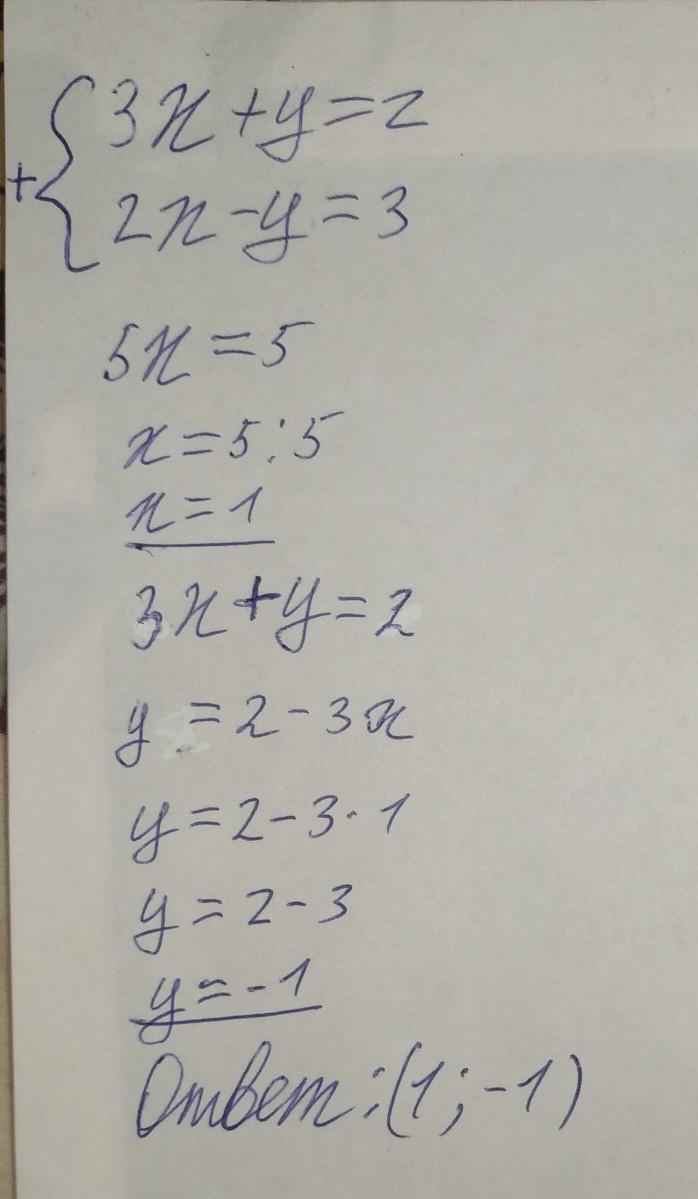 3x+y=2
+
2x-y=3
5x=5
x=5:5
x=1
3x+y=2
y=2-3x
y=2-3·1
y=2-3
y=-1
Ответ:(1;-1)